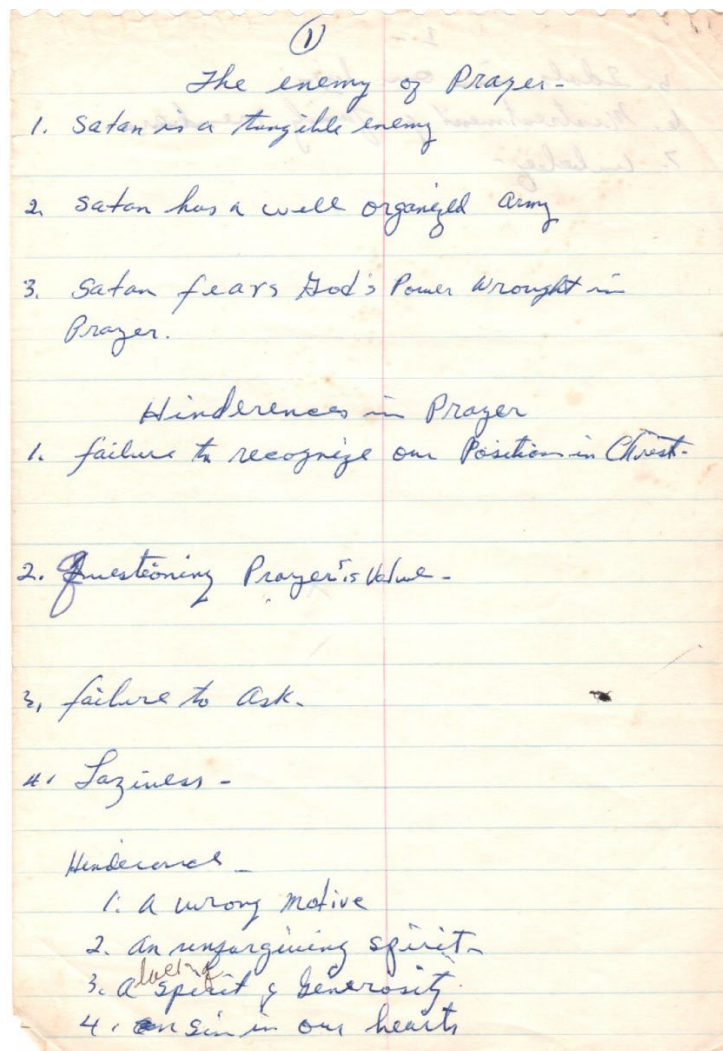 1
The enemy of Prayer-
1. Satan is a tangible enemy
2. Satan has a well organized army
3. Satan fears God's Power Wrought in
Prayer.
Hinderences in Prayer
1. failure to recognize our Position in Christ-
2. Questioning Prayer's Value-
3. failure to Ask.
4. Laziness-
Hinderences-
1. A wrong Motive
2. An unforgiving spirit-
lack of
3. A spirit of Generosity.
4. sin in our hearts